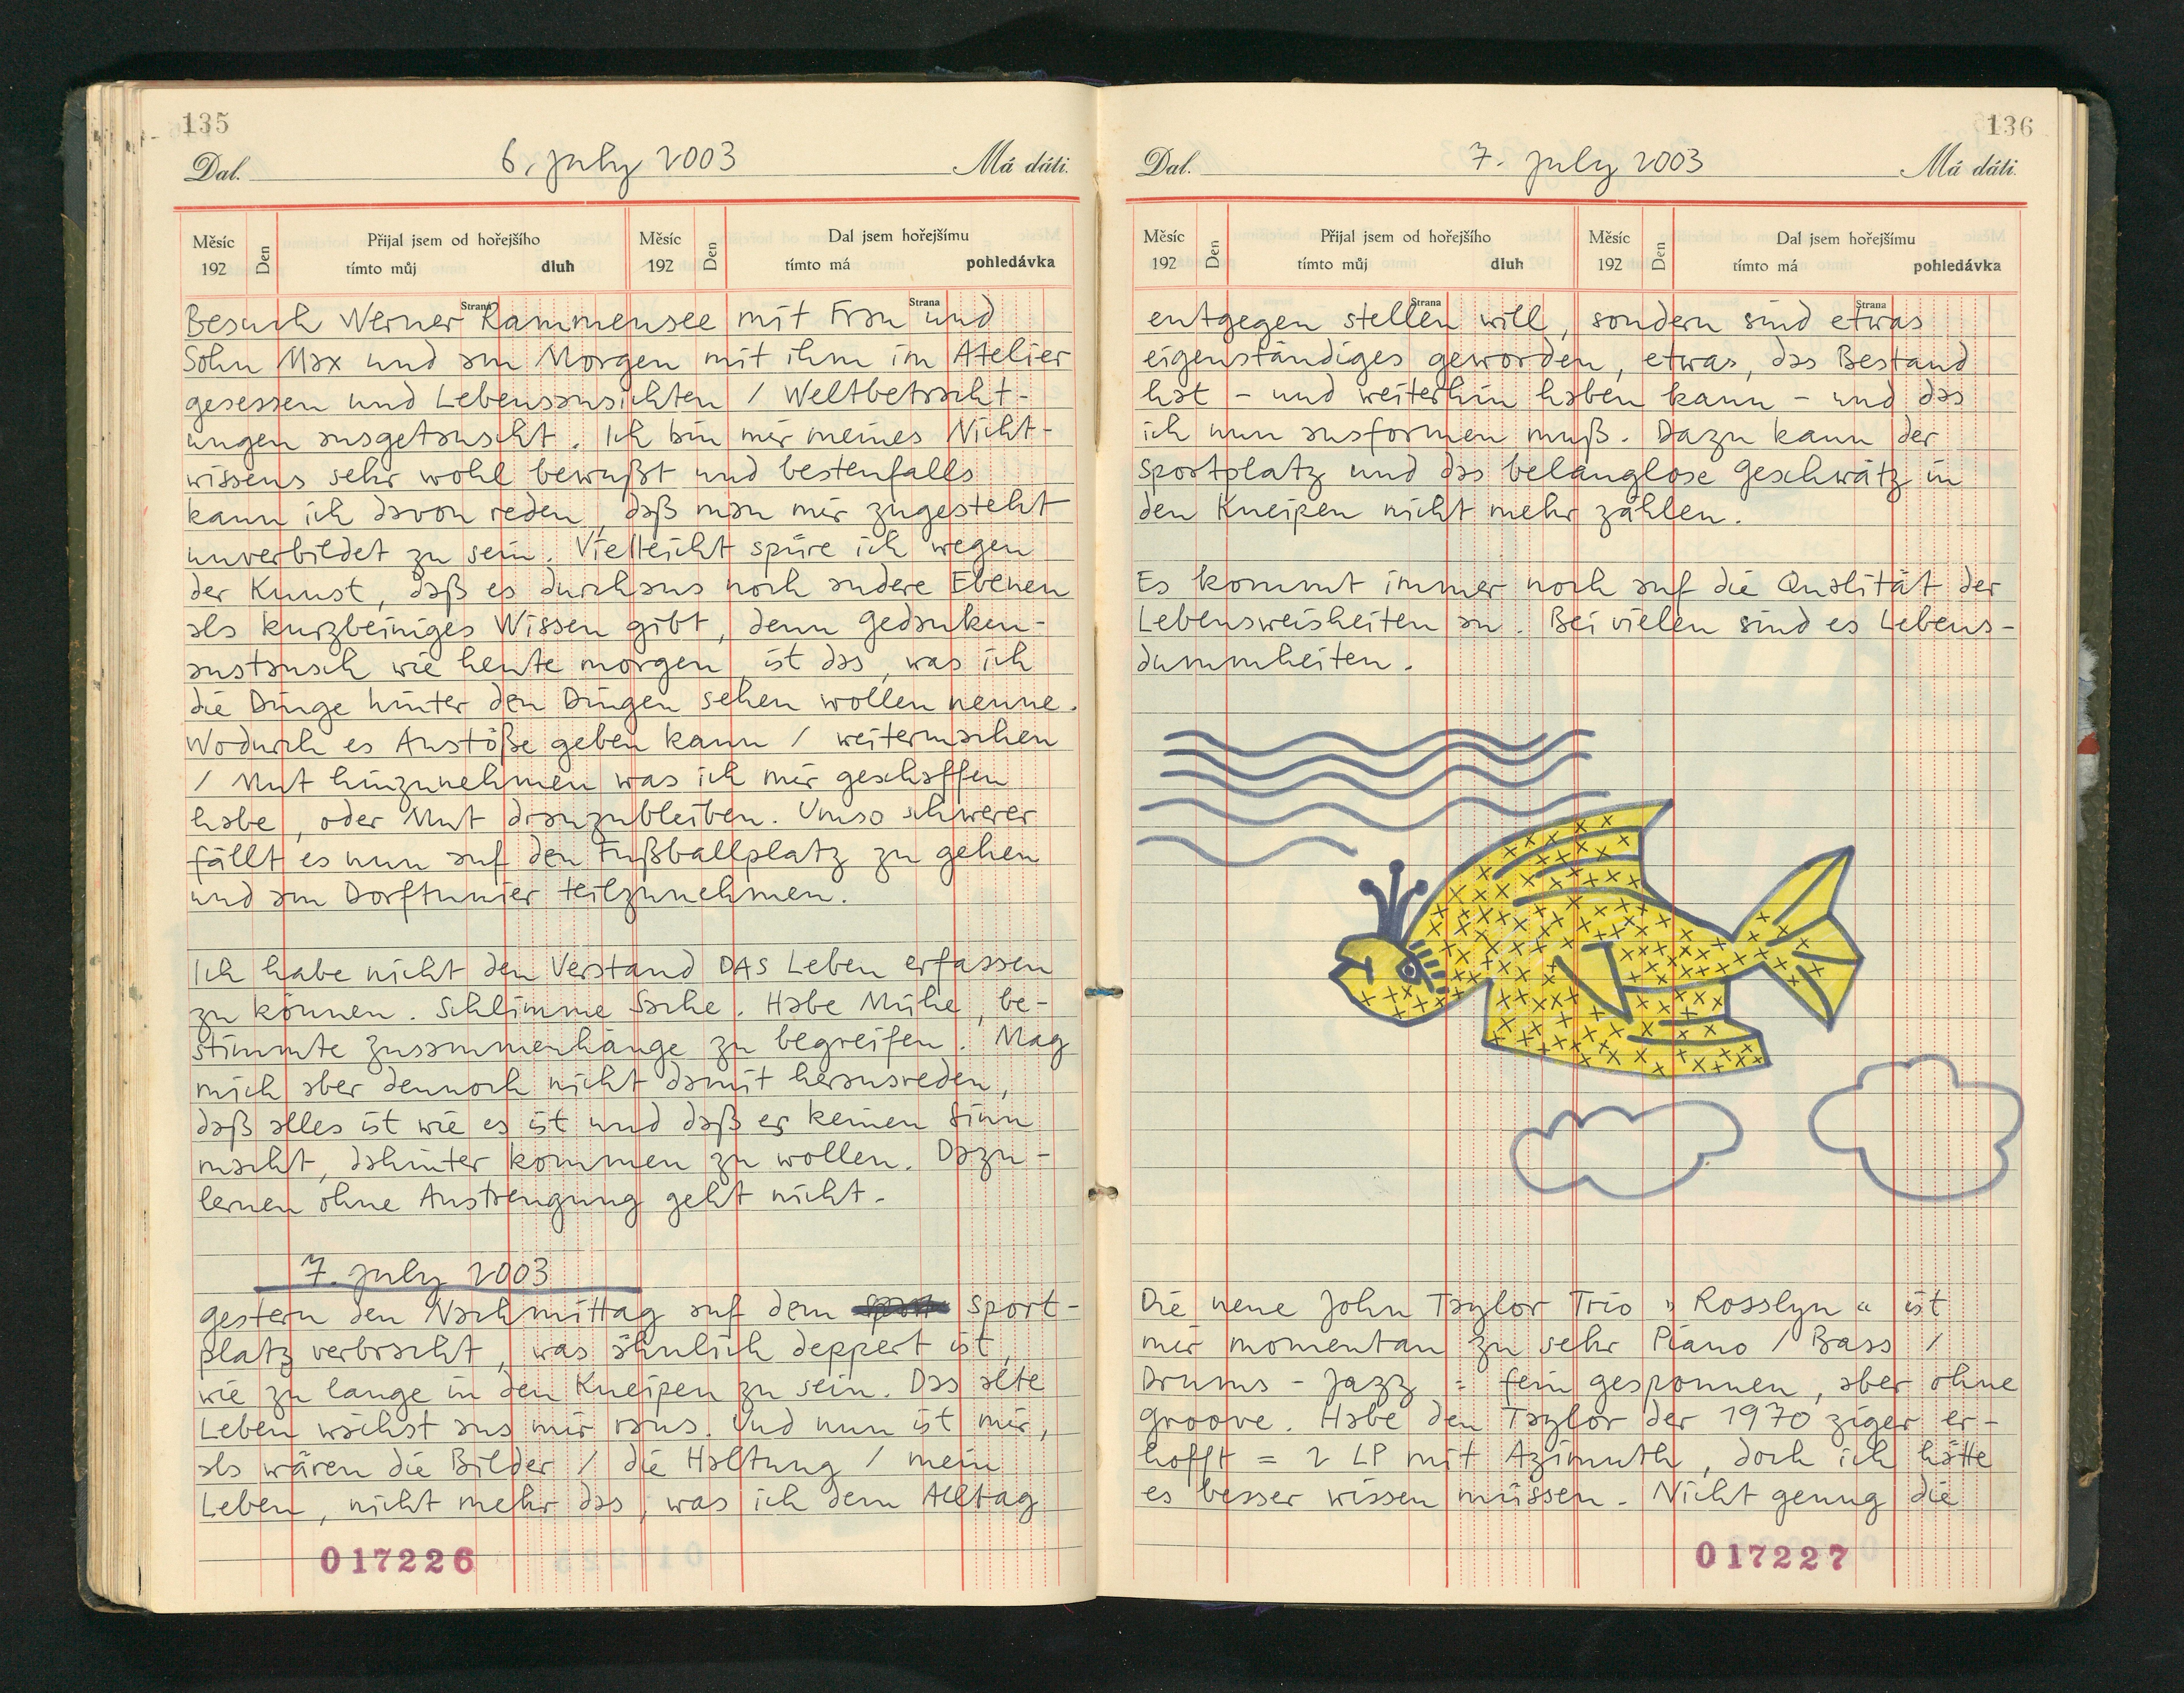 135
Dal. 6. july 2003 Má dáti.
Měsíc 192 Den Přijal jsem od hořejšího tímto můj dluh Měsíc 192 Den Dal jsem hořejšímu tímto má pohledávka
Strana Strana
Besuch Werner Kammensee mit Frau und
Sohn Max und am Morgen mit ihm im Atelier
gesessen und Lebensansichten / Weltbetracht-
ungen ausgetauscht. Ich bin mir meines Nicht-
wissens sehr wohl bewußt und bestenfalls
kann ich davon reden, daß man mir zugesteht
unverbildet zu sein. Vielleicht spüre ich wegen
der Kunst, daß es durchaus noch andere Ebenen
als kurzbeiniges Wissen gibt, denn Gedanken-
austausch wie heute morgen, ist das, was ich
die Dinge hinter den Dingen sehen wollen nenne.
Wodurch es Anstöße geben kann / weitermachen
/ Mut hinzunehmen was ich mir geschaffen
habe, oder Mut dranzubleiben. Umso schwerer
fällt es nun auf den Fußballplatz zu gehen
und am Dorftunier teilzunehmen.
Ich habe nicht den Verstand DAS Leben erfassen
zu können. Schlimme Sache. Habe Mühe, be-
stimmte Zusammenhänge zu begreifen. Mag
mich aber dennoch nicht damit herausreden,
daß alles ist wie es ist und daß es keinen Sinn
macht, dahinter kommen zu wollen. Dazu-
lernen ohne Anstrengung geht nicht.
7. july 2003
gestern den Nachmittag auf dem Sport-
platz verbracht, was ähnlich deppert ist,
wie zu lange in den Kneipen zu sein. Das alte
Leben wächst aus mir raus. Und nun ist mir,
als wären die Bilder / die Haltung / mein
Leben, nicht mehr das, was ich dem Alltag
017226
136
Dal. 7. july 2003 Má dáti.
Měsíc 192 Den Přijal jsem od hořejšího tímto můj dluh Měsíc 192 Den Dal jsem hořejšímu tímto má pohledávka
Strana Strana
entgegen stellen will, sondern sind etwas
eigenständiges geworden, etwas, das Bestand
hat - und weiterhin haben kann - und das
ich nun ausformen muß. Dazu kann der
Sportplatz und das belanglose Geschwätz in
den Kneipen nicht mehr zählen.
Es kommt immer noch auf die Qualität der
Lebensweisheiten an. Bei vielen sind es Lebens-
dummheiten.
Die neue John Taylor Trio "Rosslyn" ist
mir momentan zu sehr Piano / Bass /
Drums - Jazz : fein gesponnen, aber ohne
groove. Habe den Taylor der 1970 ziger er-
hofft = 2 LP mit Azimuth, doch ich hätte
es besser wissen müssen. Nicht genug die
017227